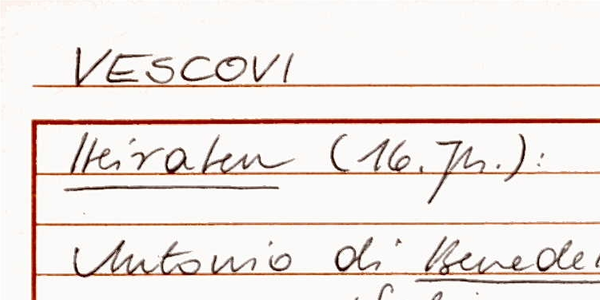 VESCOVI
Heiraten (16. Jh.):
Antonio di